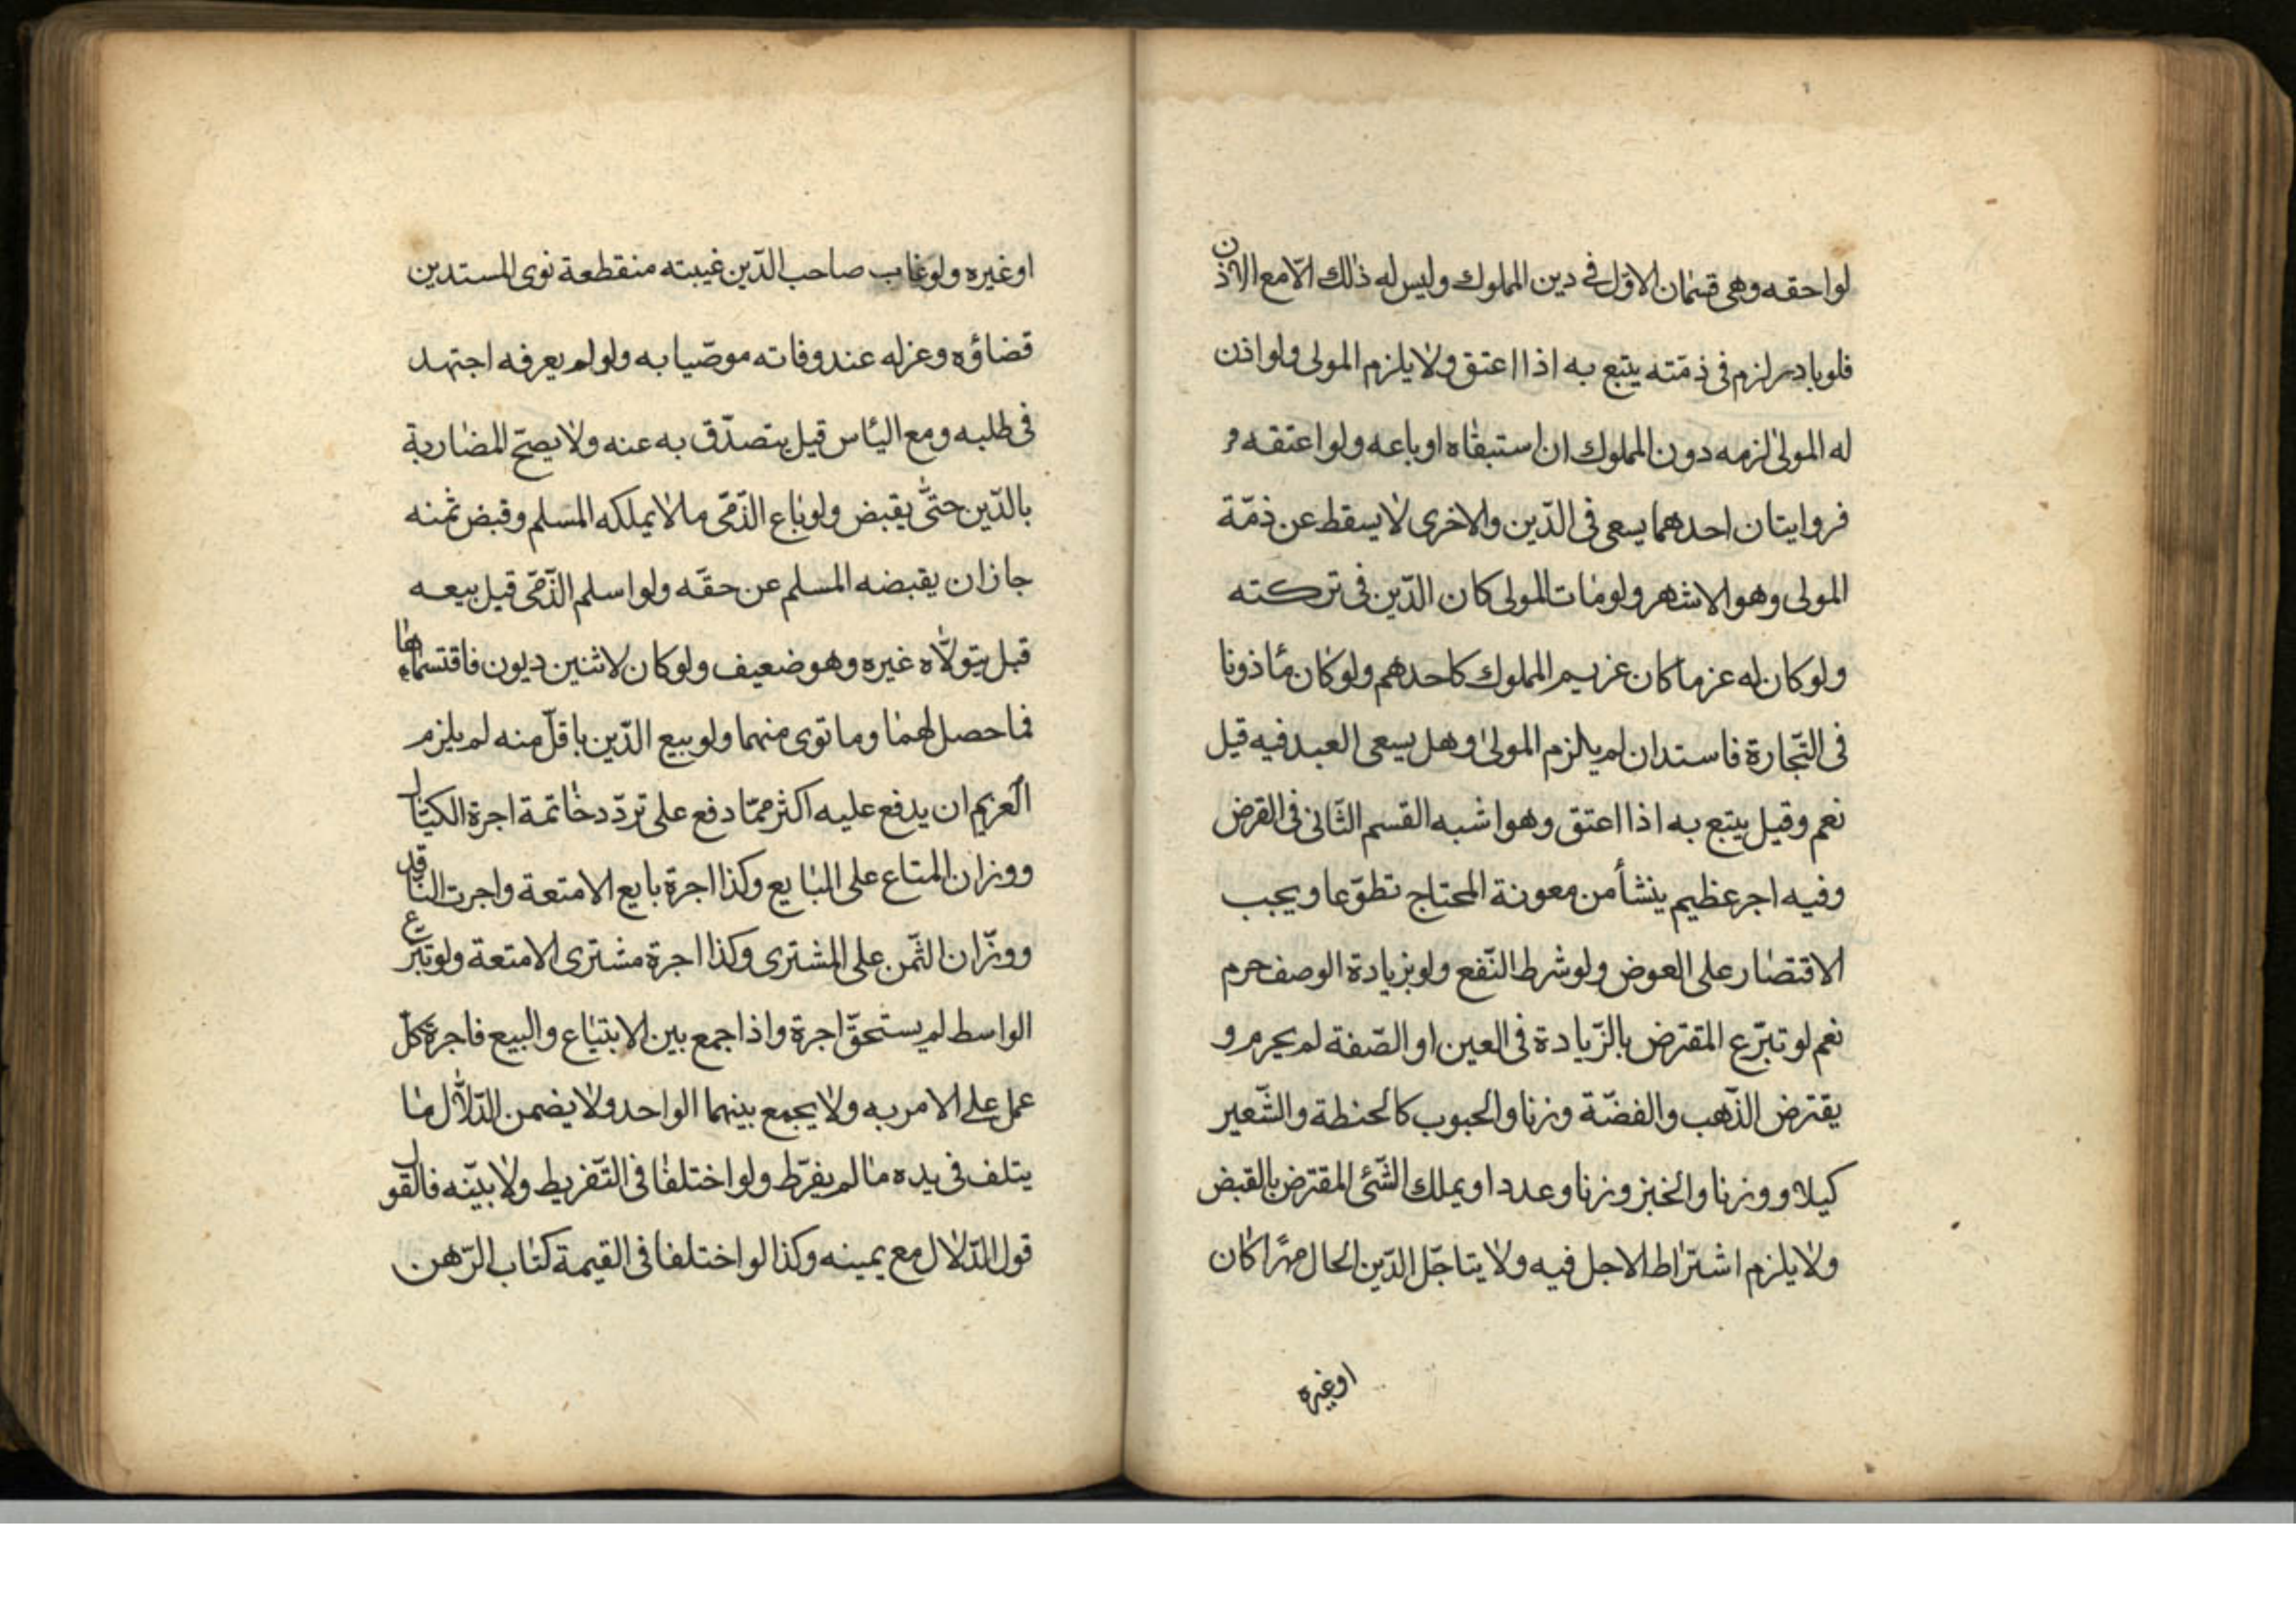 لواحقه وهى قسمان الاوّل فى دين المملوك وليس له ذلك الّا مع الاذن
فلو بادر لزم فى ذمّته يتبع به اذا اعتق ولا يلزم المولى ولو اذن
له المولى لزمه دون المملوك ان استبقاه او باعه ولو اعتقه و
فروايتان احدهما يسعى فى الدّين والاخرى لا يسقط عن ذمّة
المولى وهو الاشهر ولو مات المولى كان الدّين فى تركته
ولو كان له غرما كان غريم المملوك كاحدهم ولو كان مأذونا
فى التّجارة فاستدان لم يلزم المولى وهل يسعى العبد فيه قيل
نعم وقيل يتبع به اذا اعتق وهو اشبه القسم الثّانى فى القرض
وفيه اجر عظيم ينشأ من معونة المحتاج تطوّعا ويجب
الاقتصار على العوض ولو شرط النّفع ولو بزيادة الوصف حرم
نعم لو تبرّع المقترض بالزّيادة فى العين او الصّفة لم يحرم و
يقترض الذّهب والفضّة وزنا والحبوب كالحنطة والشّعير
كيلا ووزنا والخبز وزنا وعددا ويملك الشّئ المقترض بالقبض
ولا يلزم اشتراط الاجل فيه ولا يتاجّل الدّين الحال مهرا كان
او غيره
او غيره ولو غاب صاحب الدّين غيبته منقطعة نوى المستدين
قضاؤه وعزله عند وفاته موصّيا به ولو لم يعرفه اجتهد
فى طلبه ومع اليأس قيل يتصدّق به عنه ولا يصحّ المضاربة
بالدّين حتّى يقبض ولو باع الذّمّى ما لا يملكه المسلم وقبض ثمنه
جاز ان يقبضه المسلم عن حقّه ولو اسلم الذّمّى قبل بيعه
قبل يتولّاه غيره وهو ضعيف ولو كان لاثنين ديون فاقتسماها
فما حصل لهما وما توى منهما ولو بيع الدّين باقلّ منه لم يلزم
الغريم ان يدفع عليه اكثر ممّا دفع على تردّد خاتمة اجرة الكيّال
ووزان المتاع على البايع وكذا اجرة بايع الامتعة واجرت الناقد
ووزّان الثّمن على المشترى وكذا اجرة مشترى الامتعة ولو تبرّع
الواسط لم يستحقّ اجرة واذا جمع بين الابتياع والبيع فاجرة كلّ
عمل على الامر به ولا يجمع بينهما الواحد ولا يضمن الدّلّال ما
يتلف فى يده ما لم يفرّط ولو اختلفا فى التّفريط ولا بيّنه فالقول
قول الدّلال مع يمينه وكذا لو اختلفا فى القيمة كتاب الرّهن